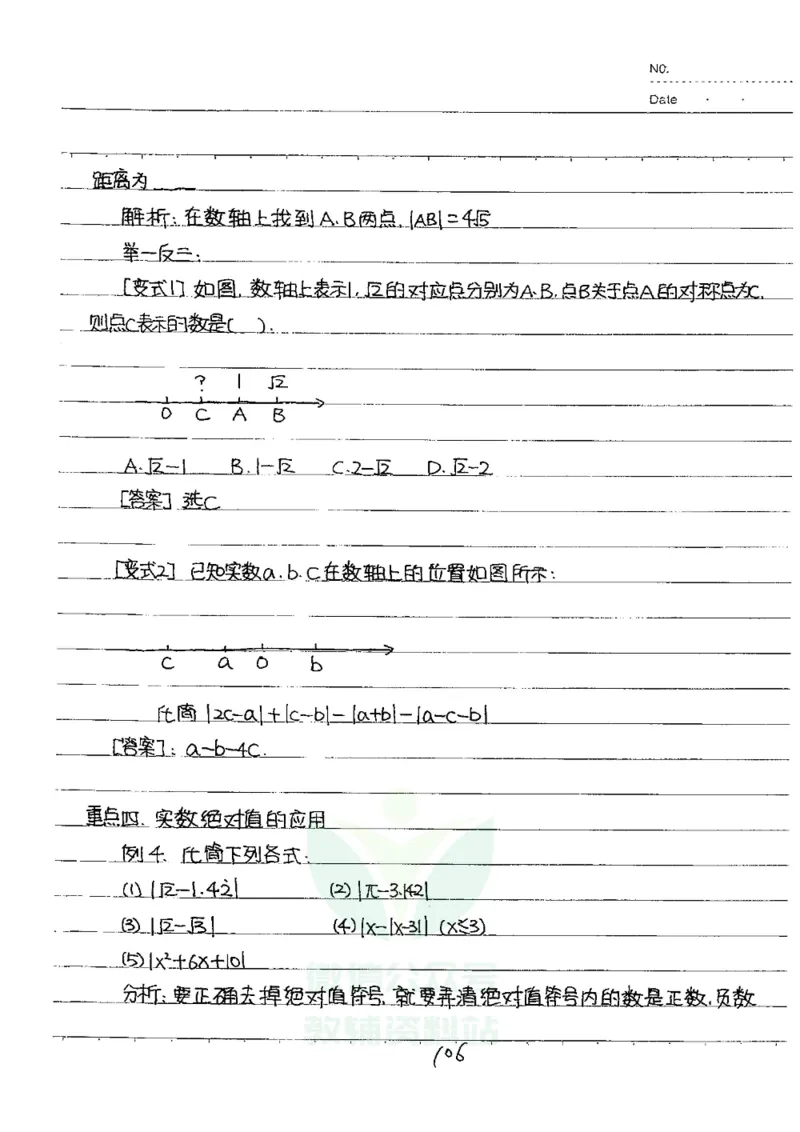 NO.
Date · ·
距离为
解析:在数轴上找到A、B两点,|AB|=4√5
举一反三:
[变式1] 如图,数轴上表示1,√2的对应点分别为A、B,点B关于点A的对称点为C,
则点C表示的数是( ).
? 1 √2
0 C A B
A.√2-1 B.1-√2 C.2-√2 D.√2-2
[答案] 选C
[变式2] 已知实数a、b、c在数轴上的位置如图所示:
c a 0 b
化简 |2c-a|+|c-b|-|a+b|-|a-c-b|
[答案]: a-b-4c.
重点四、实数绝对值的应用
例4、化简下列各式:
(1) |√2-1.42| (2) |π-3.142|
(3) |√2-√3| (4) |x-|x-3|| (x≤3)
(5) |x²+6x+10|
分析:要正确去掉绝对值符号,就要弄清绝对值符号内的数是正数,负数
微信公众号
教辅资料站
106